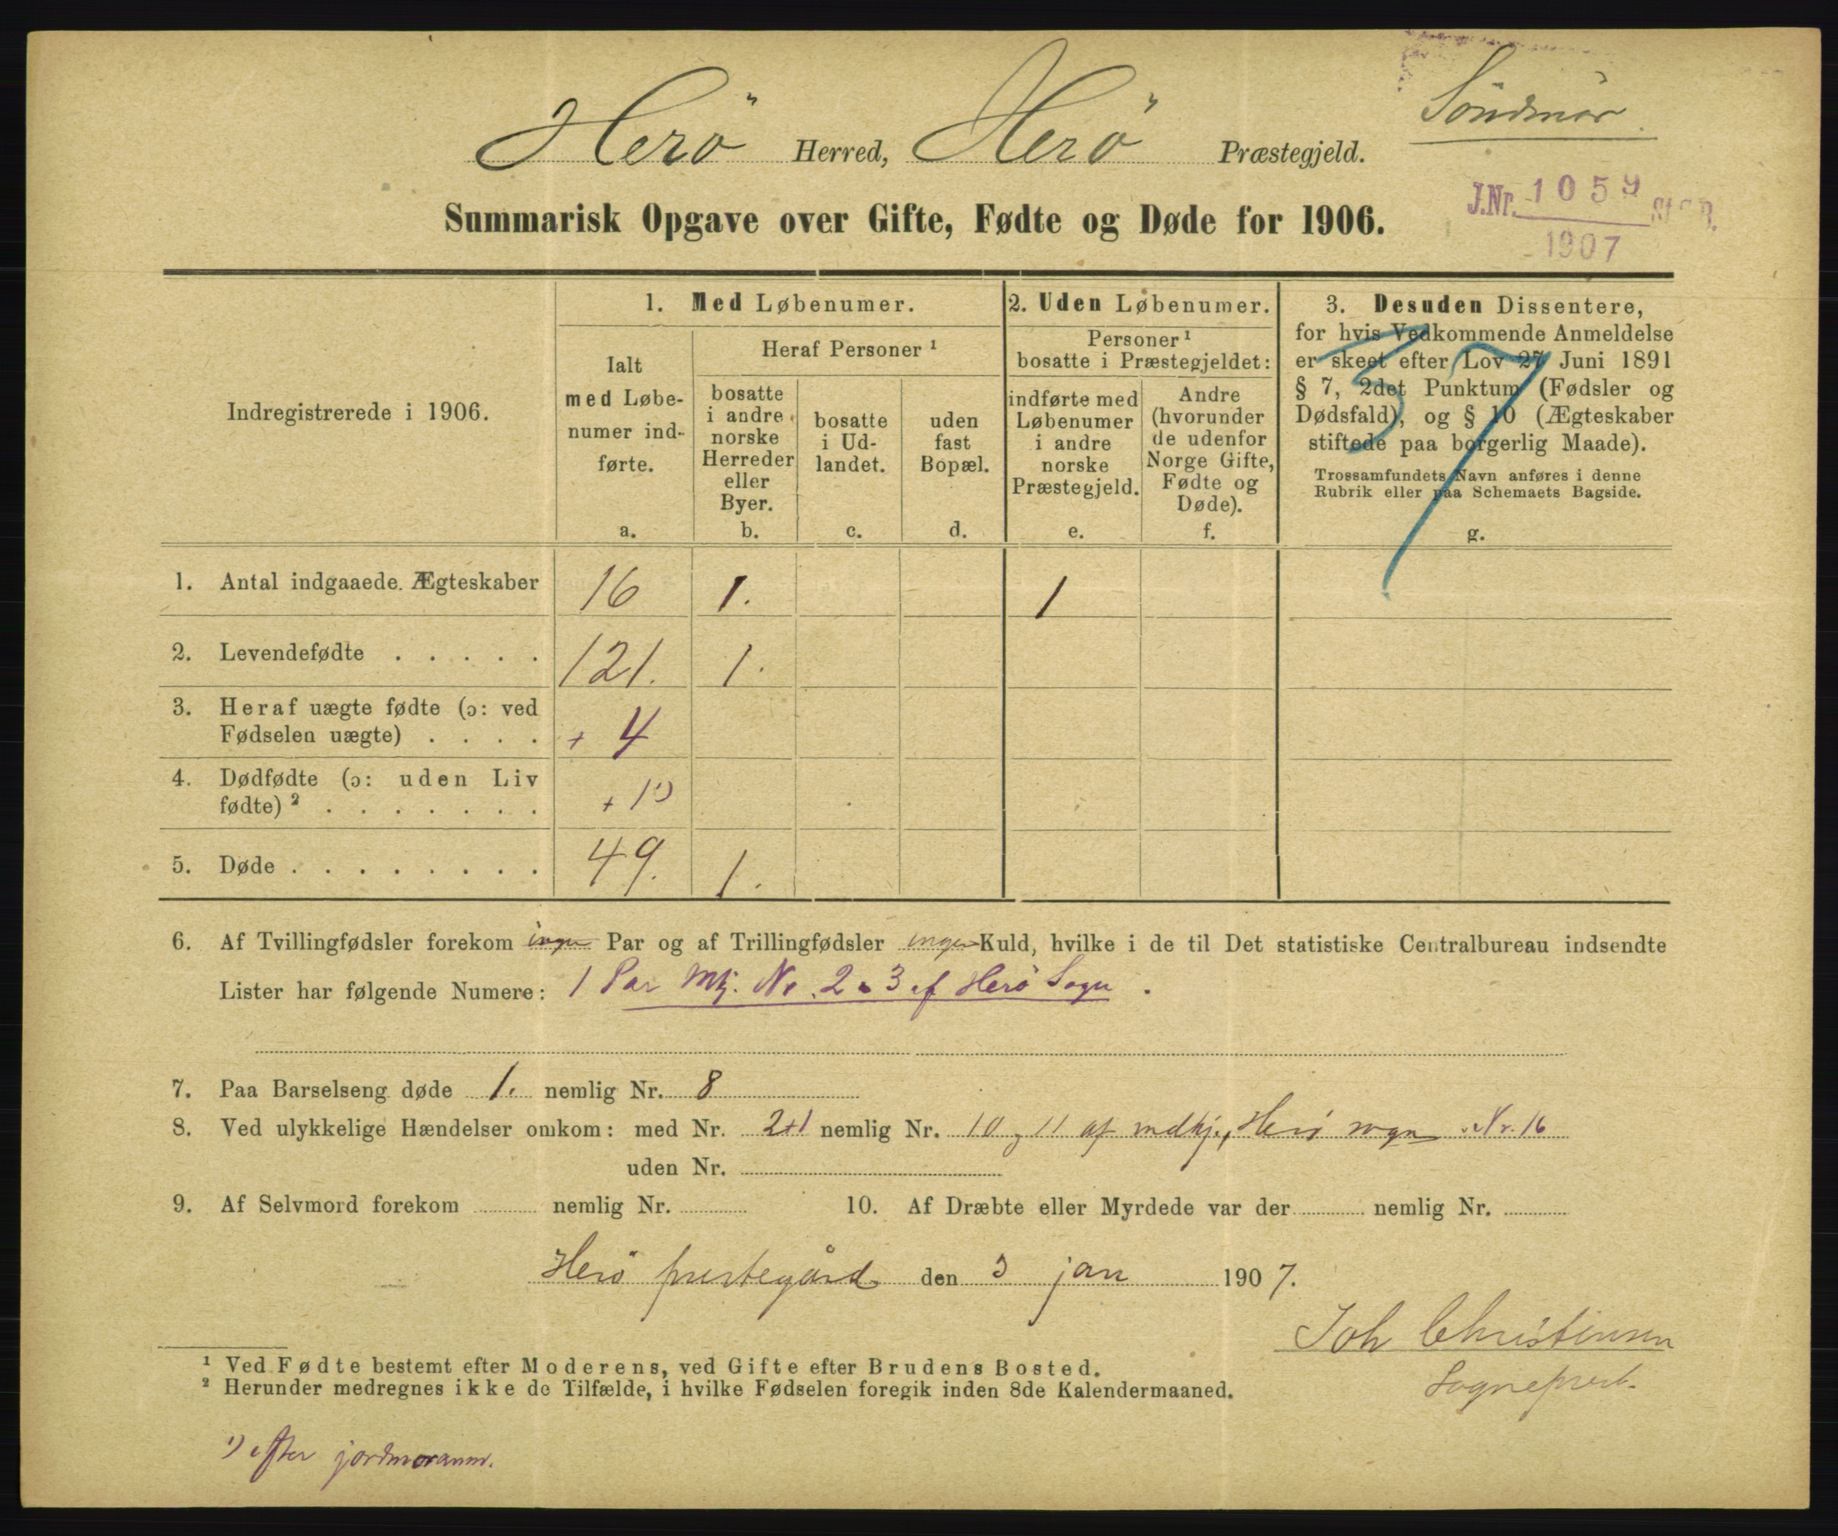 Søndmør.
Herö Herred, Herö Præstegjeld.
J.Nr. 1059 St.C.B.
1907
Summarisk Opgave over Gifte, Fødte og Døde for 1906.
Indregistrerede i 1906.
1. Med Løbenumer.
Ialt
med Løbe-
numer ind-
førte.
a.
Heraf Personer ¹
bosatte
i andre
norske
Herreder
eller
Byer.
b.
bosatte
i Ud-
landet.
c.
uden
fast
Bopæl.
d.
2. Uden Løbenumer.
Personer ¹
bosatte i Præstegjeldet:
indførte med
Løbenumer
i andre
norske
Præstegjeld.
e.
Andre
(hvorunder
de udenfor
Norge Gifte,
Fødte og
Døde).
f.
3. Desuden Dissentere,
for hvis Vedkommende Anmeldelse
er skeet efter Lov 27 Juni 1891
§ 7, 2det Punktum (Fødsler og
Dødsfald), og § 10 (Ægteskaber
stiftede paa borgerlig Maade).
Trossamfundets Navn anføres i denne
Rubrik eller paa Schemaets Bagside.
g.
1. Antal indgaaede Ægteskaber 16 1. 1
2. Levendefødte . . . . . 121. 1.
3. Heraf uægte fødte (ɔ: ved
Fødselen uægte) . . . . + 4
4. Dødfødte (ɔ: uden Liv
fødte) ² . . . . . . . + 1 ¹)
5. Døde . . . . . . . . 49. 1.
6. Af Tvillingfødsler forekom ingen Par og af Trillingfødsler ingen Kuld, hvilke i de til Det statistiske Centralbureau indsendte
Lister har følgende Numere: 1 Par Mkj. No. 2 & 3 af Herö Sogn.
7. Paa Barselseng døde 1. nemlig Nr. 8
8. Ved ulykkelige Hændelser omkom: med Nr. 2+1 nemlig Nr. 10 og 11 af mdkj., Herö sogn Nr. 16
uden Nr.
9. Af Selvmord forekom nemlig Nr. 10. Af Dræbte eller Myrdede var der nemlig Nr.
Herö prestegård den 3 jan 1907.
Joh Christensen
Sogneprest.
¹ Ved Fødte bestemt efter Moderens, ved Gifte efter Brudens Bosted.
² Herunder medregnes ikke de Tilfælde, i hvilke Fødselen foregik inden 8de Kalendermaaned.
¹) efter jordmoranm.